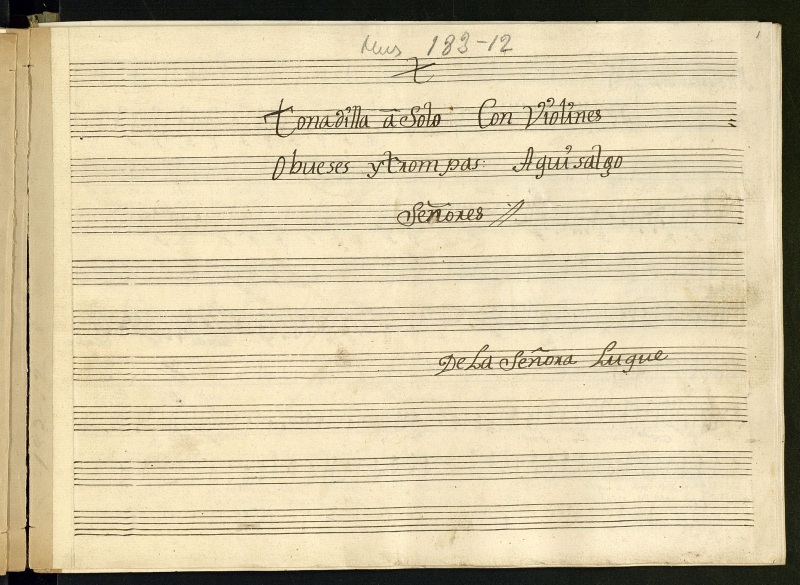 Mus 183-12
1
tonadilla a Solo Con Violines
Obueses ytrompas: Aqui salgo
Señores //
De La Señora Luque